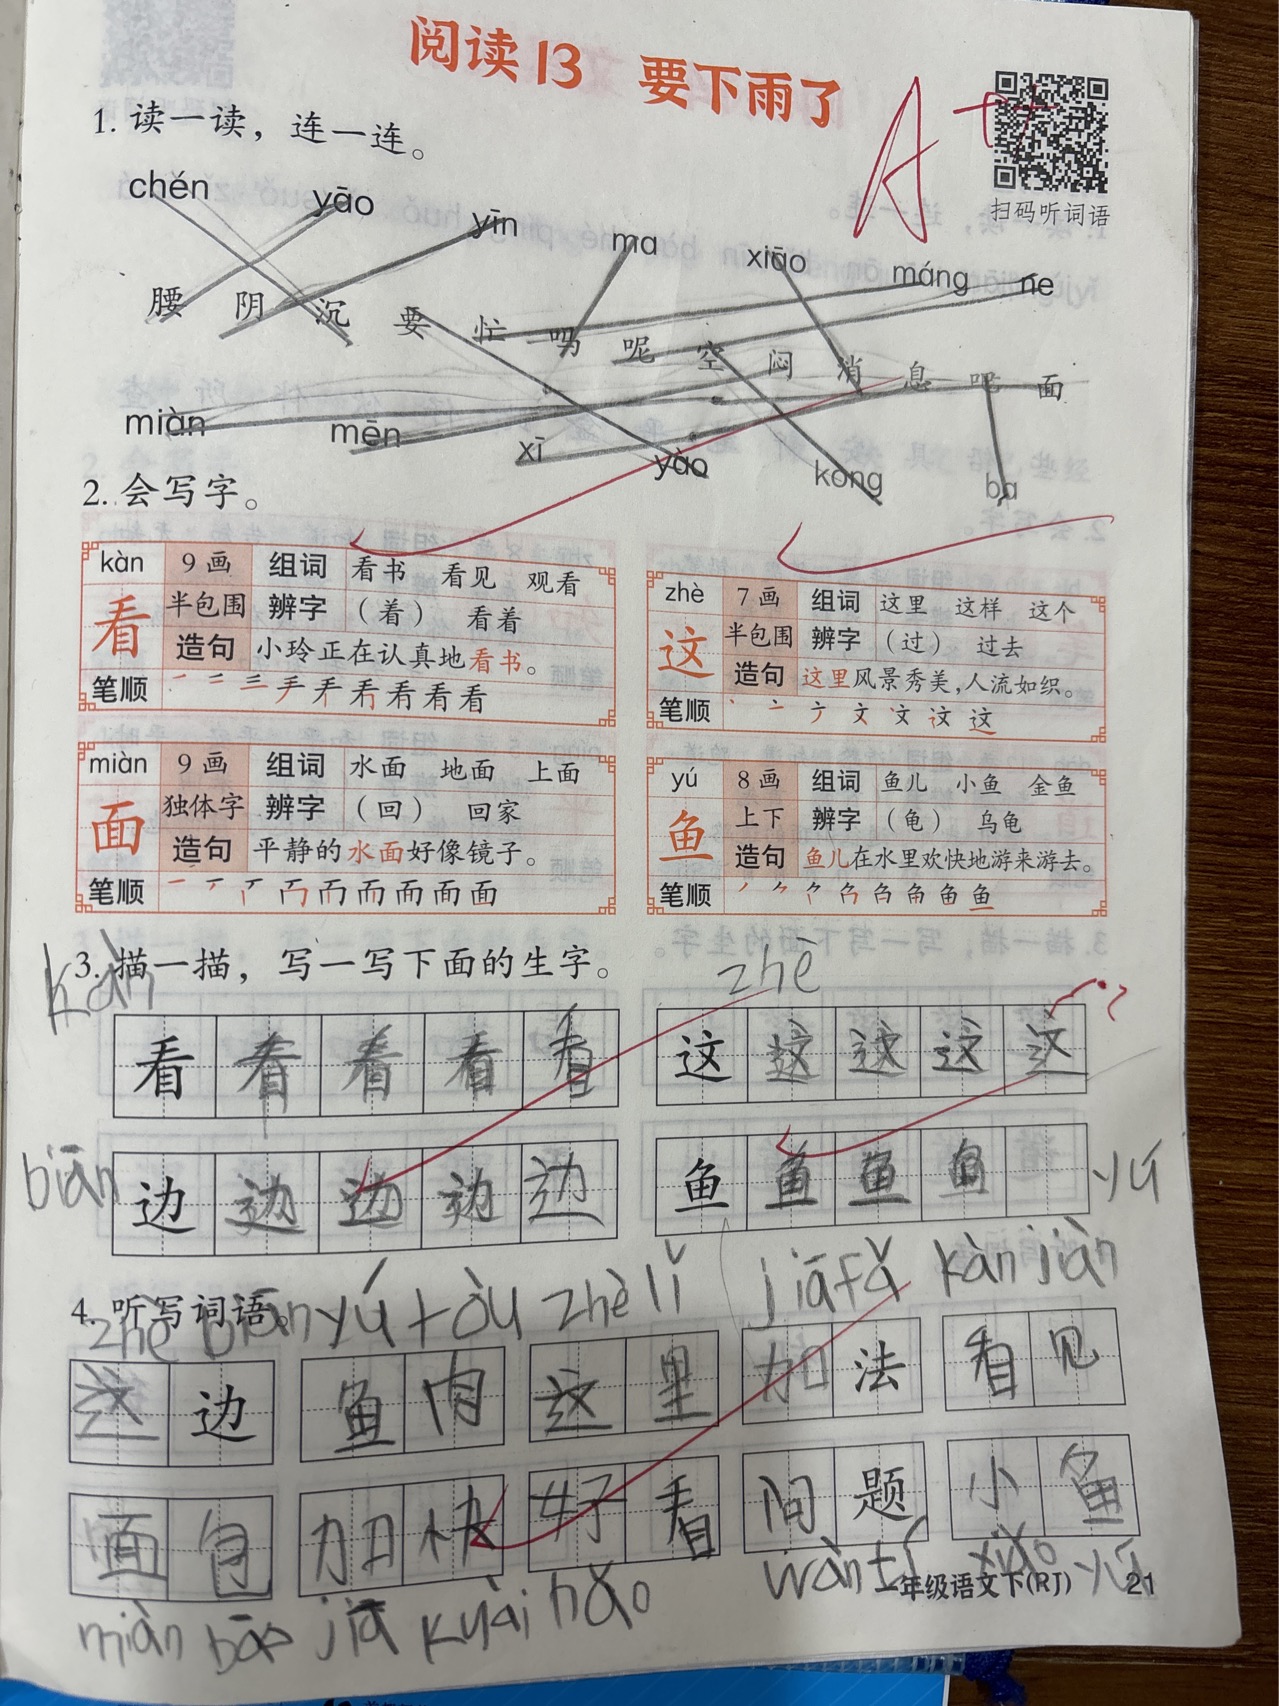 阅读13 要下雨了
A++
扫码听词语
1. 读一读，连一连。
chén yāo yīn ma xiāo máng ne
腰 阴 沉 要 忙 吗 呢 空 闷 消 息 吧 面
miàn mēn xī yào kōng ba
2. 会写字。
kàn 9画 组词 看书 看见 观看
看 半包围 辨字 （着） 看着
造句 小玲正在认真地看书。
笔顺
zhè 7画 组词 这里 这样 这个
这 半包围 辨字 （过） 过去
造句 这里风景秀美，人流如织。
笔顺
miàn 9画 组词 水面 地面 上面
面 独体字 辨字 （回） 回家
造句 平静的水面好像镜子。
笔顺
yú 8画 组词 鱼儿 小鱼 金鱼
鱼 上下 辨字 （龟） 乌龟
造句 鱼儿在水里欢快地游来游去。
笔顺
3. 描一描，写一写下面的生字。
kàn zhē
看 看 看 看 看 这 这 这 这 这
biān 边 边 边 边 边 鱼 鱼 鱼 鱼 yú
4. 听写词语。
zhè biān yú ròu zhè lǐ jiā fǎ kàn jiàn
这边 鱼肉 这里 加法 看见
面包 加快 好看 问题 小鱼
miàn bāo jiā kuài hǎo wàn tí xiǎo yú
一年级语文下(RJ) 21